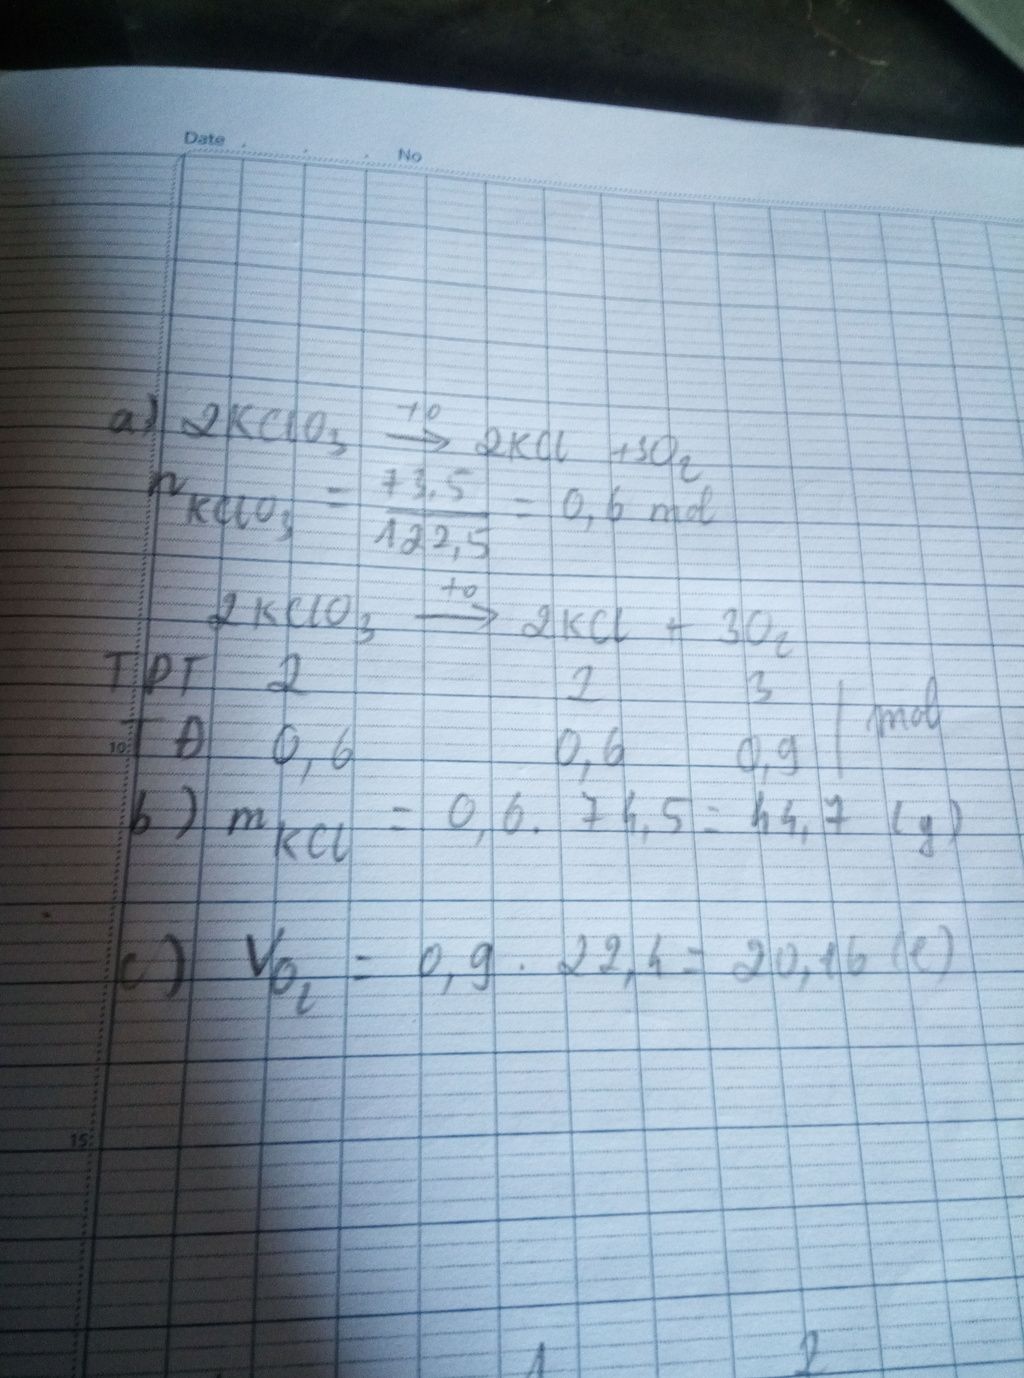 Date No
a) 2KClO₃ →(t⁰) 2KCl + 3O₂
n KClO₃ = 73,5 / 122,5 = 0,6 mol
2KClO₃ →(t⁰) 2KCl + 3O₂
TPT 2 2 3
10 TĐ 0,6 0,6 0,9 | mol
b) m KCl = 0,6 . 74,5 = 44,7 (g)
c) V O₂ = 0,9 . 22,4 = 20,16 (l)
15
1 2